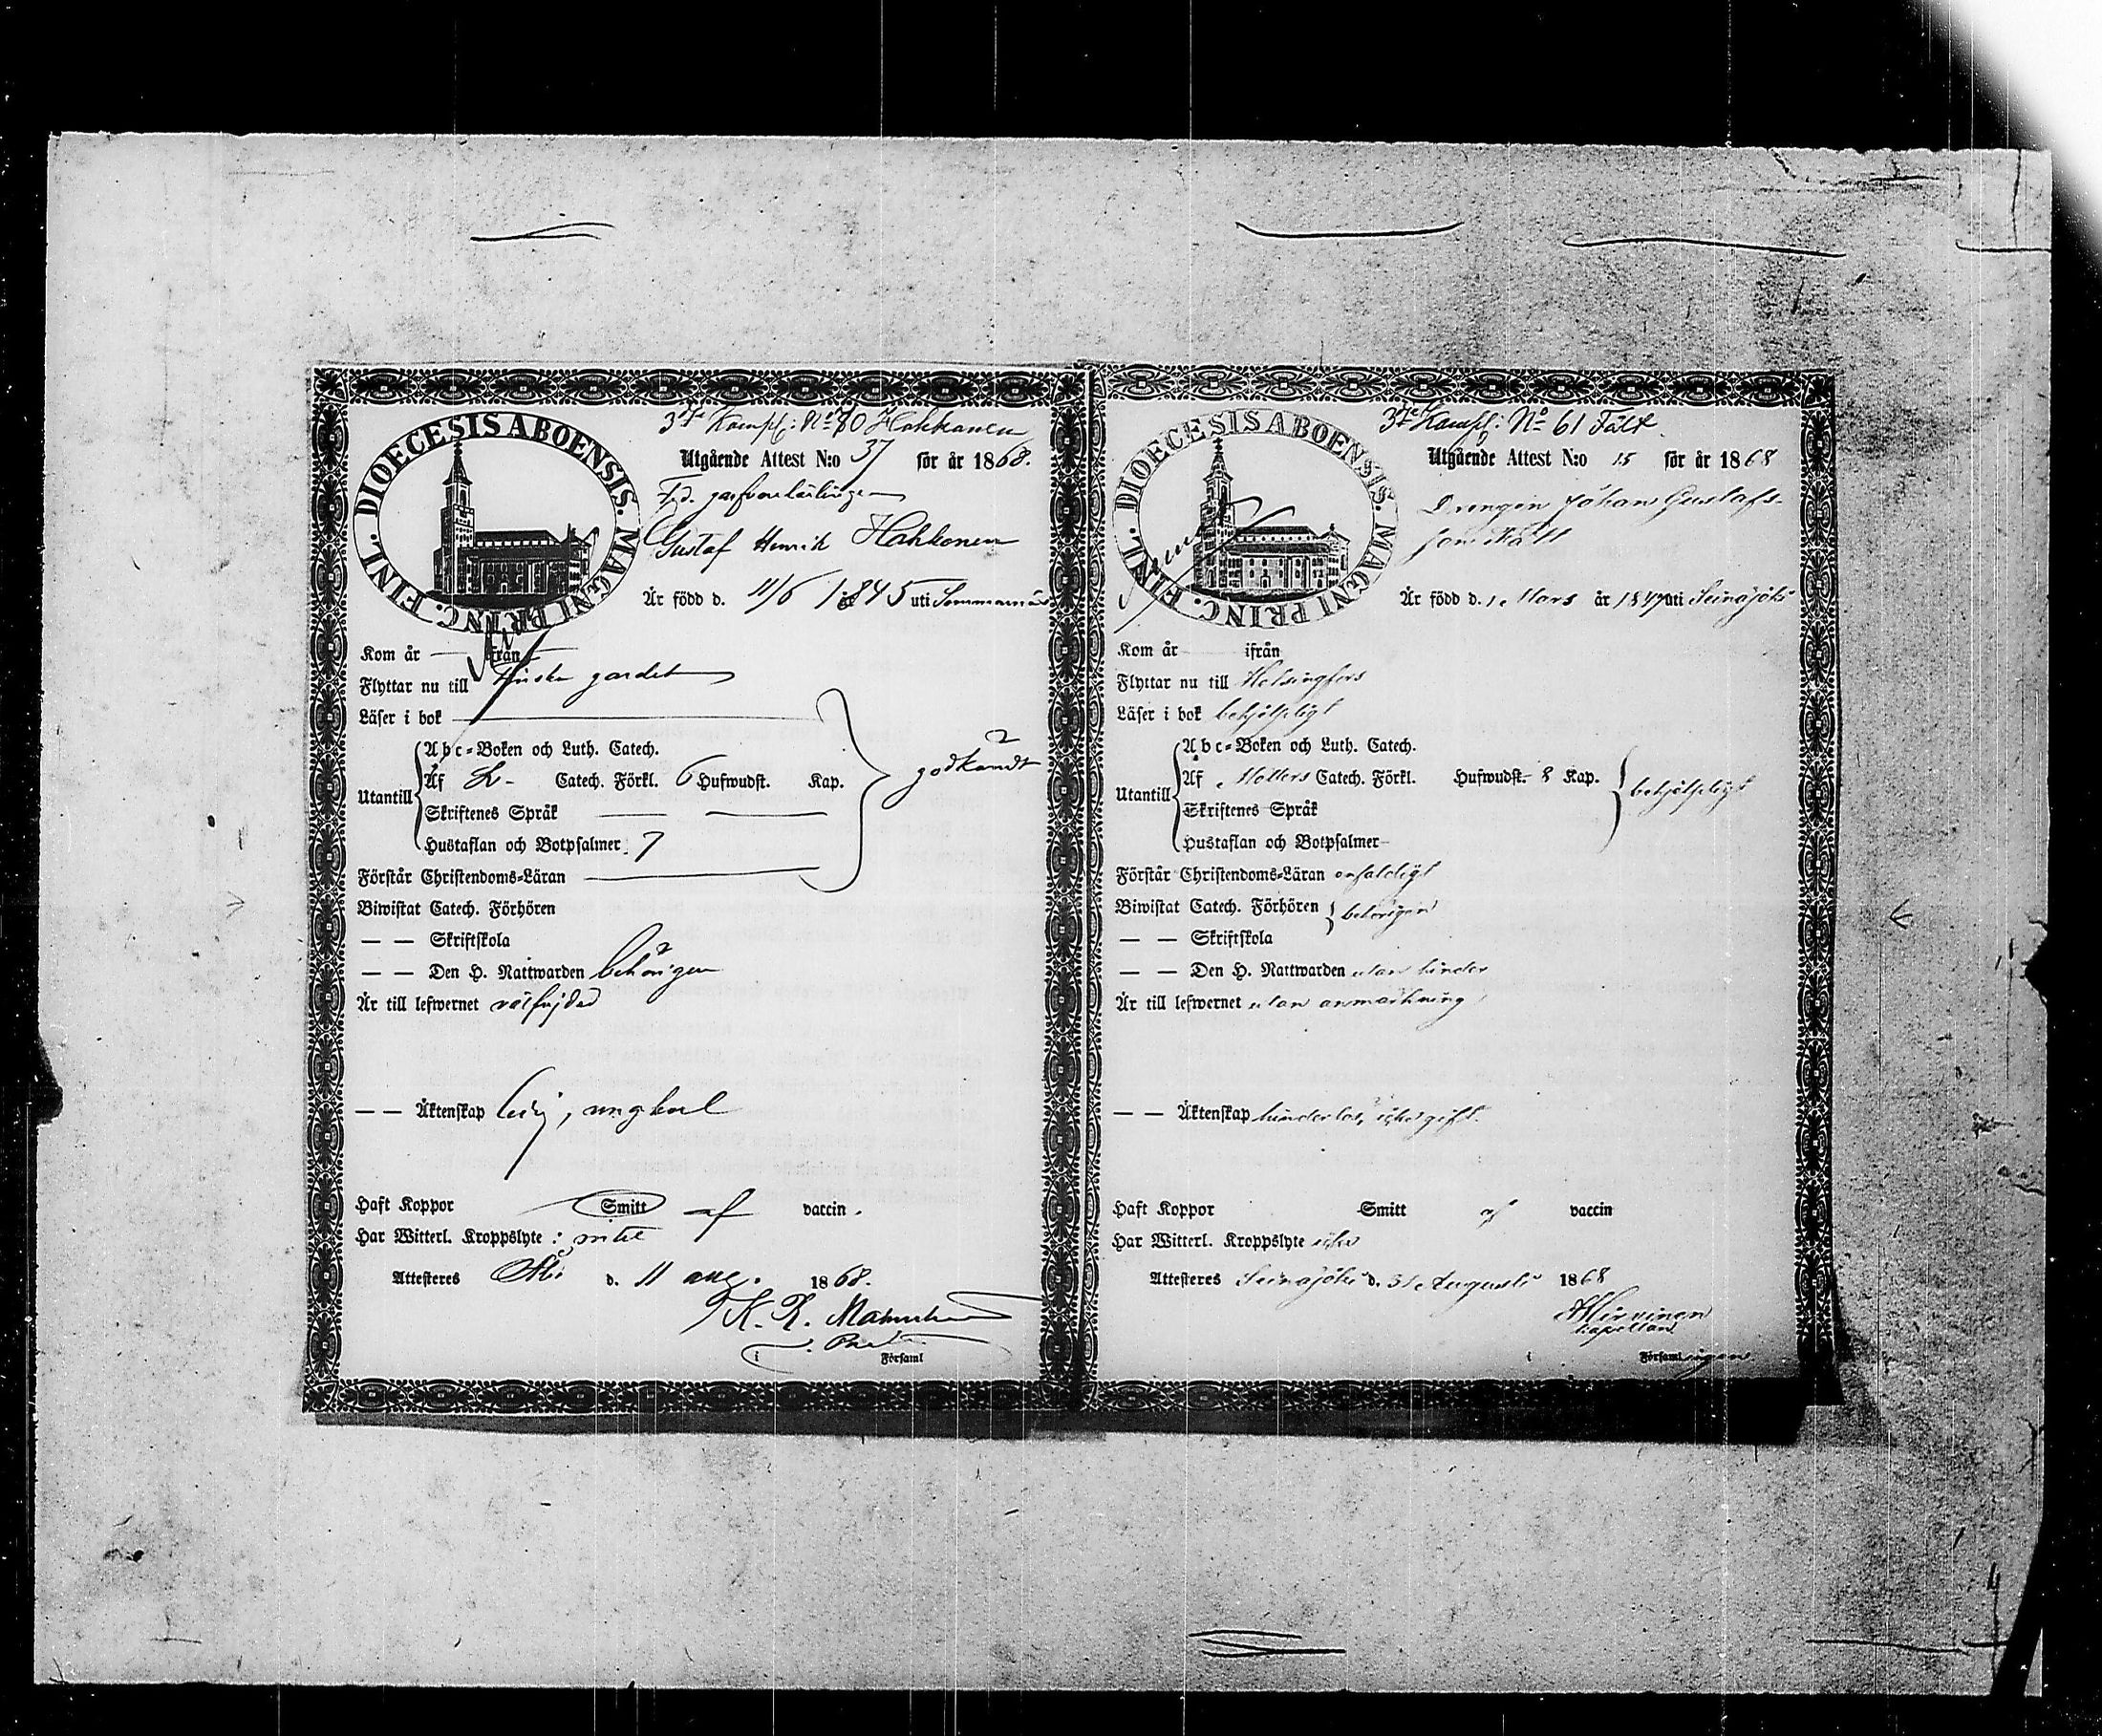 3dje Kompl: No 70 Hakkanen
DIOECESIS ABOENSIS. MAGNI PRINC. FINL.
Utgående Attest N:o 37 för år 1868.
Gustaf Henrik Hakkonen
Är född d. 11/6 1845 uti
Kom år — ifrån —
Flyttar nu till Finska gardet
Läser i bok
Abc-Boken och Luth. Catech.
Utantill Af L- Catech. Förkl. 6 Hufwudst. Kap. godkändt
Skriftenes Språk
Hustaflan och Botpsalmer 7
Förstår Christendoms-Läran
Biwistat Catech. Förhören
— — Skriftskola
— — Den H. Nattwarden behörigen
Är till lefwernet välfrejdad
— — Äktenskap ledig, ungkarl
Haft Koppor Smitt af vaccin.
Har Witterl. Kroppslyte: intet
Attesteres Åbo d. 11 aug. 1868.
K. R.
i Församl
3dje Kompl: No 61 Fält
DIOECESIS ABOENSIS. MAGNI PRINC. FINL.
Utgående Attest N:o 15 för år 1868
Drengen Johan Gustafs-
son Fält
Är född d. 1 Mars år 1847 uti Seinäjoki
Kom år ifrån
Flyttar nu till Helsingfors
Läser i bok behjelpligt
Abc-Boken och Luth. Catech.
Utantill Af Möllers Catech. Förkl. Hufwudst. 8 Kap. behjelpligt
Skriftenes Språk
Hustaflan och Botpsalmer
Förstår Christendoms-Läran enfaldigt
Biwistat Catech. Förhören behörigen
— — Skriftskola
— — Den H. Nattwarden utan hinder
Är till lefwernet utan anmärkning
— — Äktenskap hinderlös, icke gift.
Haft Koppor Smitt af vaccin
Har Witterl. Kroppslyte icke
Attesteres Seinäjoki d. 31 Augusti 1868
Hirvinen
kapellan
i Församlingen